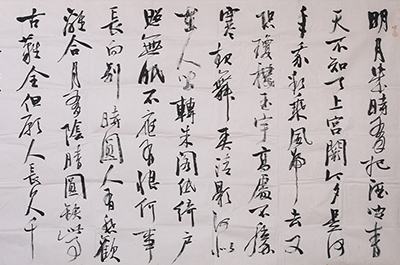 明月幾時有把酒问青
天不知天上宫闕今夕是何
年我欲乘风歸去又
恐瓊樓玉宇高處不勝
寒起舞弄清影何似
在人间轉朱阁低绮户
照無眠不應有恨何事
長向别時圓人有悲歡
離合月有陰晴圓缺此事
古難全但願人長久千